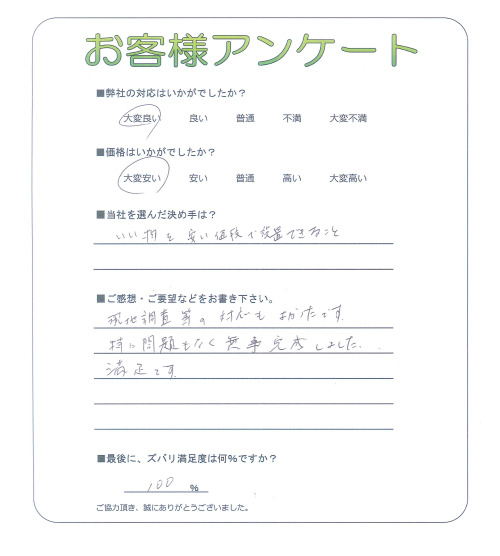 お客様アンケート
■弊社の対応はいかがでしたか？
大変良い 良い 普通 不満 大変不満
■価格はいかがでしたか？
大変安い 安い 普通 高い 大変高い
■当社を選んだ決め手は？
いい物を安い値段で設置できること
■ご感想・ご要望などをお書き下さい。
現地調査等の対応もよかったです。
特に問題もなく無事完成しました。
満足です。
■最後に、ズバリ満足度は何％ですか？
100 %
ご協力頂き、誠にありがとうございました。